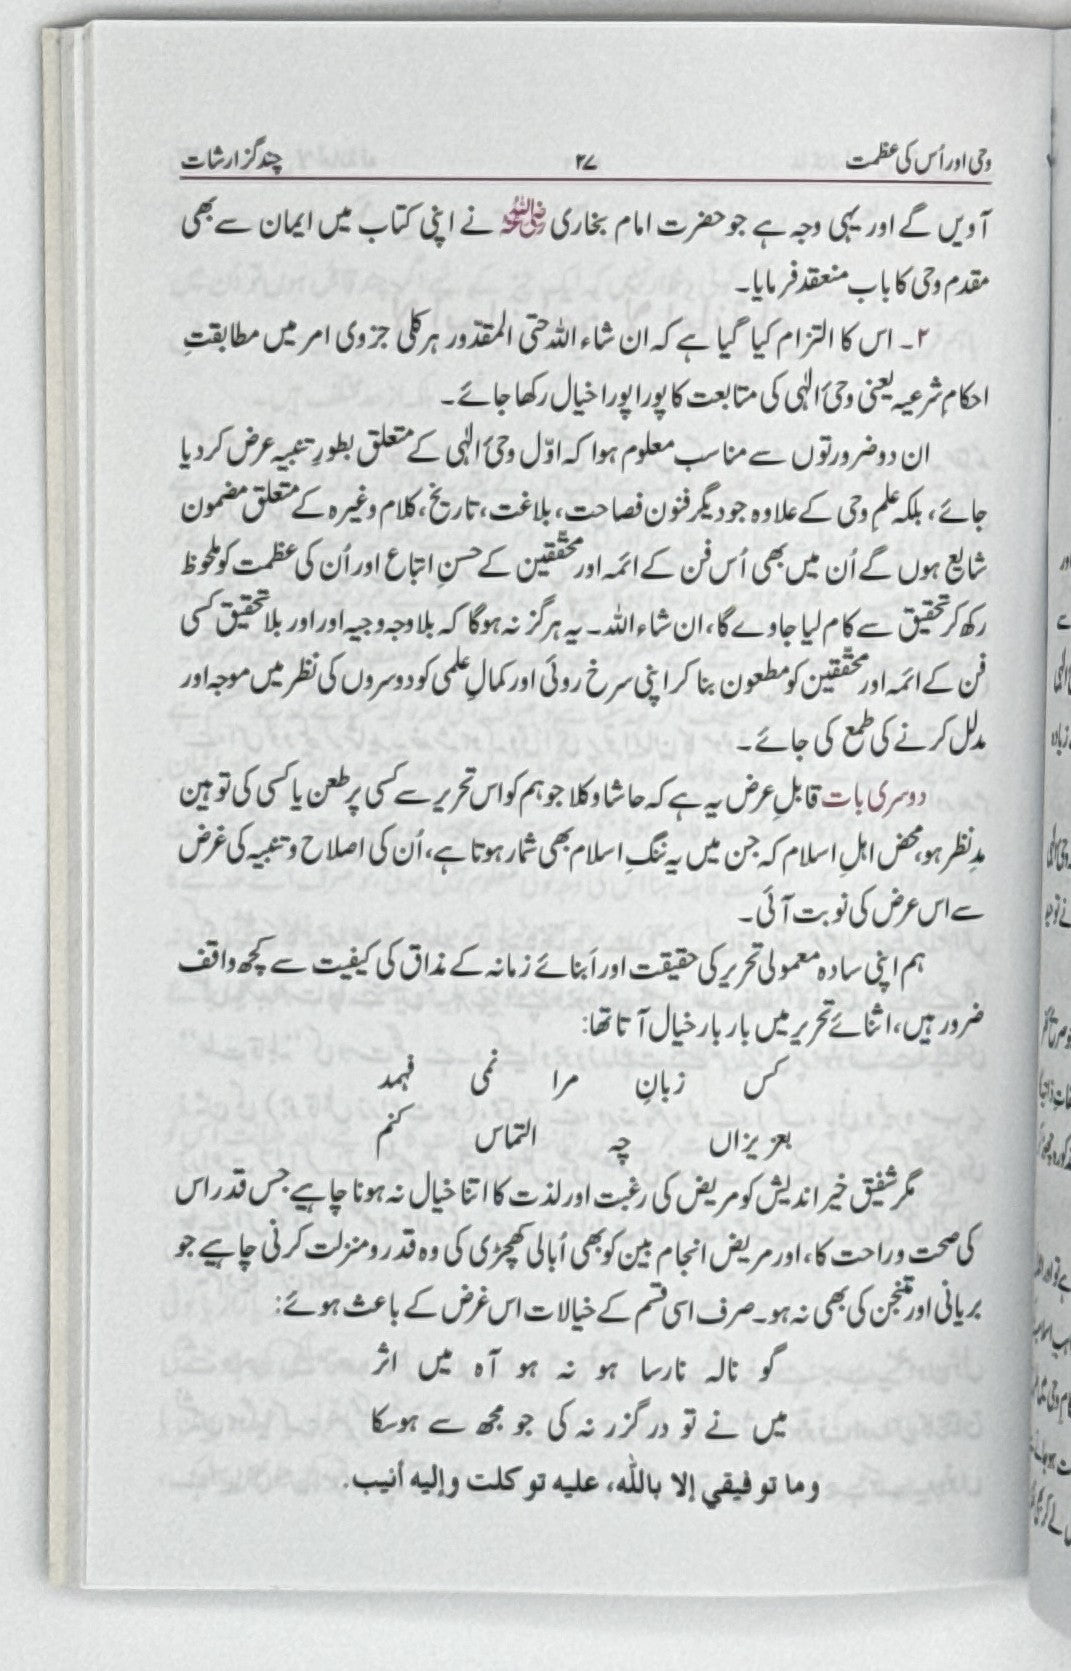 وحی اور اُس کی عظمت ۲۷ چند گزارشات
آویں گے اور یہی وجہ ہے جو حضرت امام بخاری رضی اللہ عنہ نے اپنی کتاب میں ایمان سے بھی
مقدم وحی کا باب منعقد فرمایا۔
۲۔ اس کا التزام کیا گیا ہے کہ ان شاء اللہ حتی المقدور ہر کلی جزوی امر میں مطابقتِ
احکامِ شرعیہ یعنی وحیٔ الٰہی کی متابعت کا پورا پورا خیال رکھا جائے۔
ان دو ضرورتوں سے مناسب معلوم ہوا کہ اوّل وحیٔ الٰہی کے متعلق بطورِ تنبیہ عرض کر دیا
جائے، بلکہ علمِ وحی کے علاوہ جو دیگر فنون فصاحت، بلاغت، تاریخ، کلام وغیرہ کے متعلق مضمون
شایع ہوں گے اُن میں بھی اُس فن کے ائمہ اور محققین کے حسنِ اتباع اور اُن کی عظمت کو ملحوظ
رکھ کر تحقیق سے کام لیا جاوے گا، ان شاء اللہ۔ یہ ہرگز نہ ہوگا کہ بلاوجہ وجیہ اور اور بلا تحقیق کسی
فن کے ائمہ اور محققین کو مطعون بنا کر اپنی سرخ روئی اور کمالِ علمی کو دوسروں کی نظر میں موجہ اور
مدلل کرنے کی طمع کی جائے۔
دوسری بات قابلِ عرض یہ ہے کہ حاشا وکلا جو ہم کو اس تحریر سے کسی پر طعن یا کسی کی توہین
مدِ نظر ہو، محض اہلِ اسلام کہ جن میں یہ ننگِ اسلام بھی شمار ہوتا ہے، اُن کی اصلاح و تنبیہ کی غرض
سے اس عرض کی نوبت آئی۔
ہم اپنی سادہ معمولی تحریر کی حقیقت اور اَبنائے زمانہ کے مذاق کی کیفیت سے کچھ واقف
ضرور ہیں، اثنائے تحریر میں بار بار خیال آتا تھا:
کس زبانِ مرا نمی فہمد
بعزیزاں چہ التماس کنم
مگر شفیق خیر اندیش کو مریض کی رغبت اور لذت کا اتنا خیال نہ ہونا چاہیے جس قدر اس
کی صحت و راحت کا، اور مریض انجام بین کو بھی اُبالی کھچڑی کی وہ قدر و منزلت کرنی چاہیے جو
بریانی اور متنجن کی بھی نہ ہو۔ صرف اسی قسم کے خیالات اس غرض کے باعث ہوئے:
گو نالہ نارسا ہو نہ ہو آہ میں اثر
میں نے تو درگزر نہ کی جو مجھ سے ہوسکا
وما توفيقي إلا بالله، عليه توكلت وإليه أنيب.